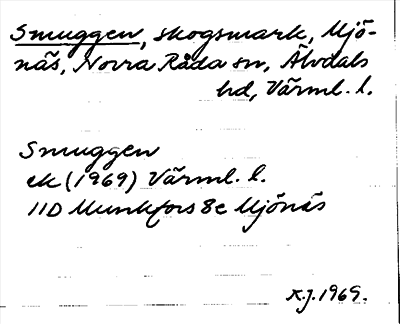 Smuggen, skogsmark, Mjö-
näs, Norra Råda sn, Älvdals
hd, Värml. l.
Smuggen
ek (1969) Värml. l.
11D Munkfors 8e Mjönäs
K.J. 1969.